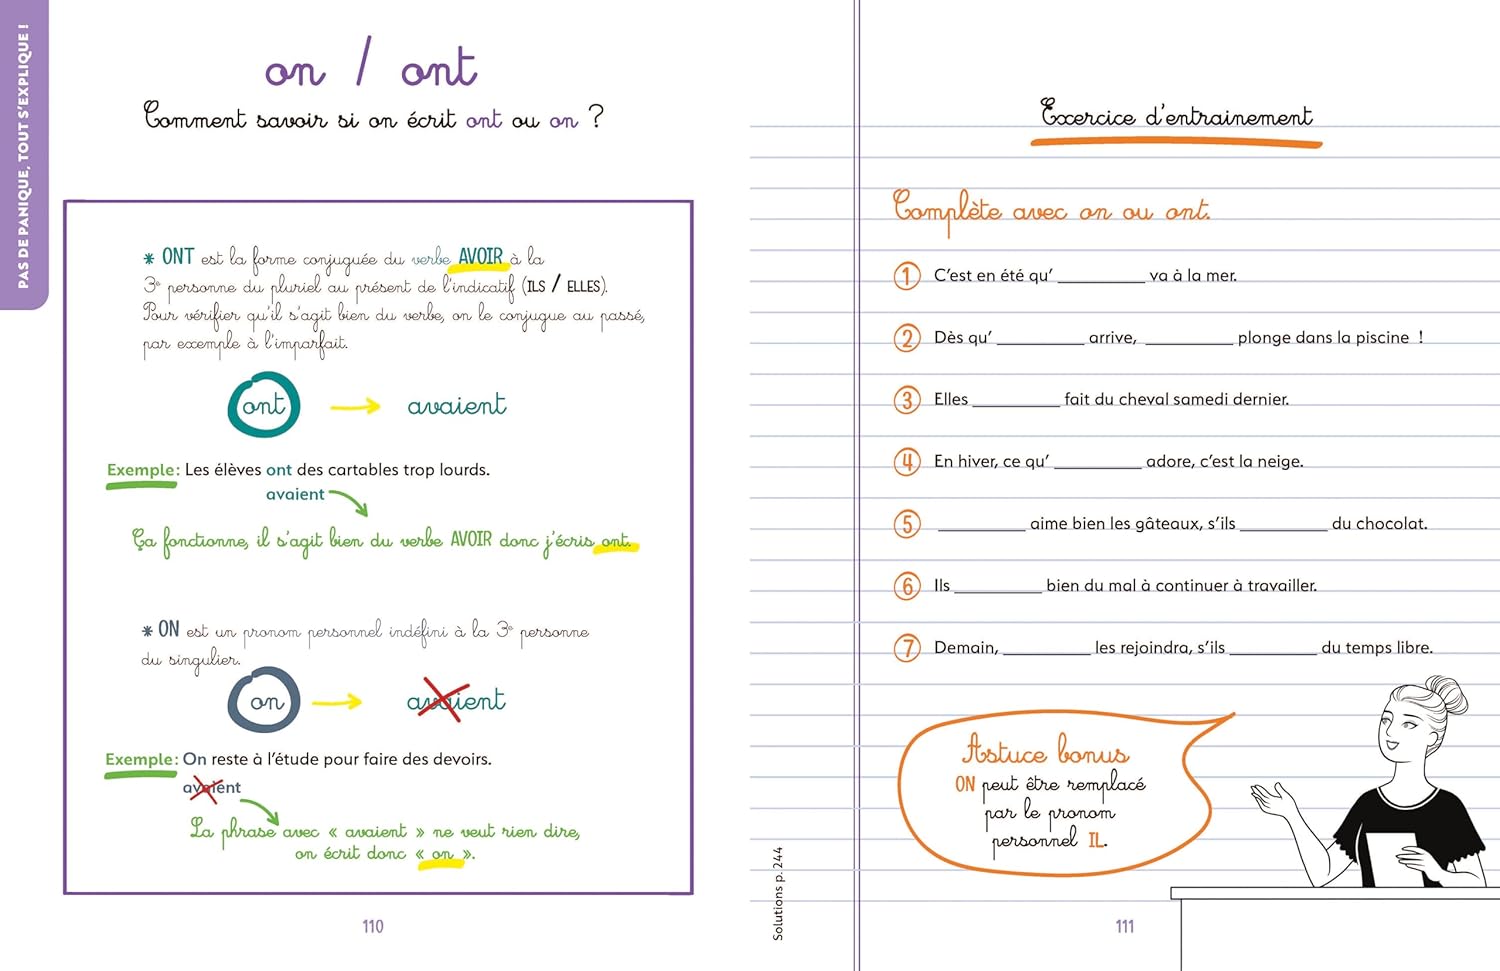 PAS DE PANIQUE, TOUT S'EXPLIQUE !
on / ont
Comment savoir si on écrit ont ou on ?
* ONT est la forme conjuguée du verbe AVOIR à la
3e personne du pluriel au présent de l'indicatif (ILS / ELLES).
Pour vérifier qu'il s'agit bien du verbe, on le conjugue au passé,
par exemple à l'imparfait.
ont → avaient
Exemple : Les élèves ont des cartables trop lourds.
avaient
Ça fonctionne, il s'agit bien du verbe AVOIR donc j'écris ont.
* ON est un pronom personnel indéfini à la 3e personne
du singulier.
on → avaient
Exemple : On reste à l'étude pour faire des devoirs.
avaient
La phrase avec « avaient » ne veut rien dire,
on écrit donc « on ».
110
Exercice d'entrainement
Complète avec on ou ont.
1 C'est en été qu' __________ va à la mer.
2 Dès qu' __________ arrive, __________ plonge dans la piscine !
3 Elles __________ fait du cheval samedi dernier.
4 En hiver, ce qu' __________ adore, c'est la neige.
5 __________ aime bien les gâteaux, s'ils __________ du chocolat.
6 Ils __________ bien du mal à continuer à travailler.
7 Demain, __________ les rejoindra, s'ils __________ du temps libre.
Astuce bonus
ON peut être remplacé
par le pronom
personnel IL.
Solutions p. 244
111